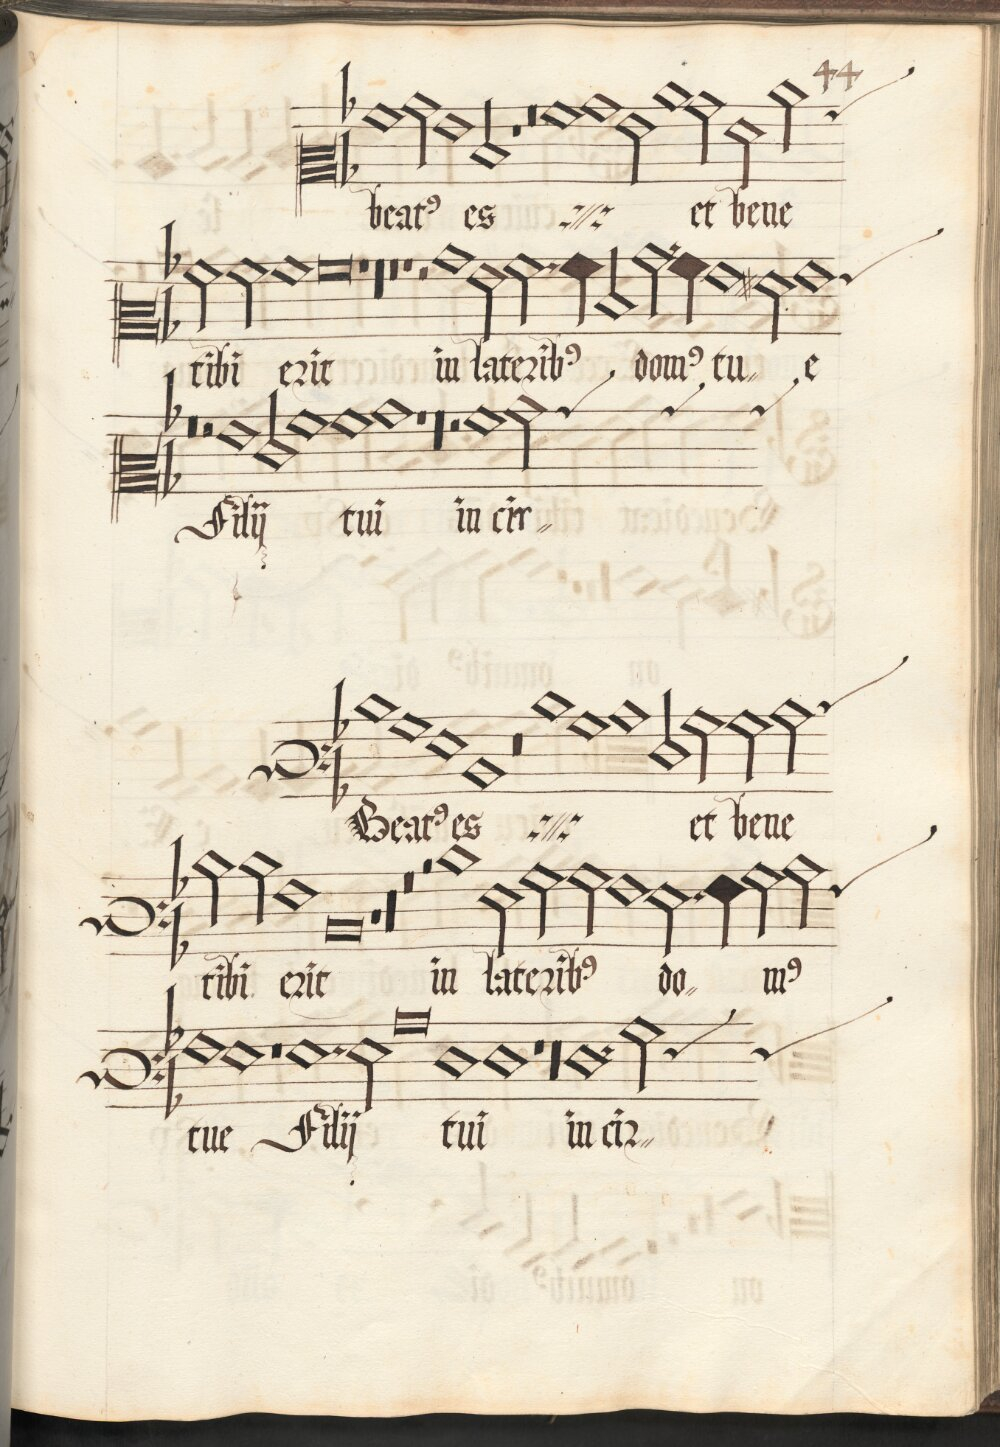 44
beatꝰ es et bene
tibi erit in lateribꝰ domꝰ tu〃 e
Filij tui in cir〃
Beatꝰ es et bene
tibi erit in lateribꝰ do〃 mꝰ
tue Filij tui in cir〃